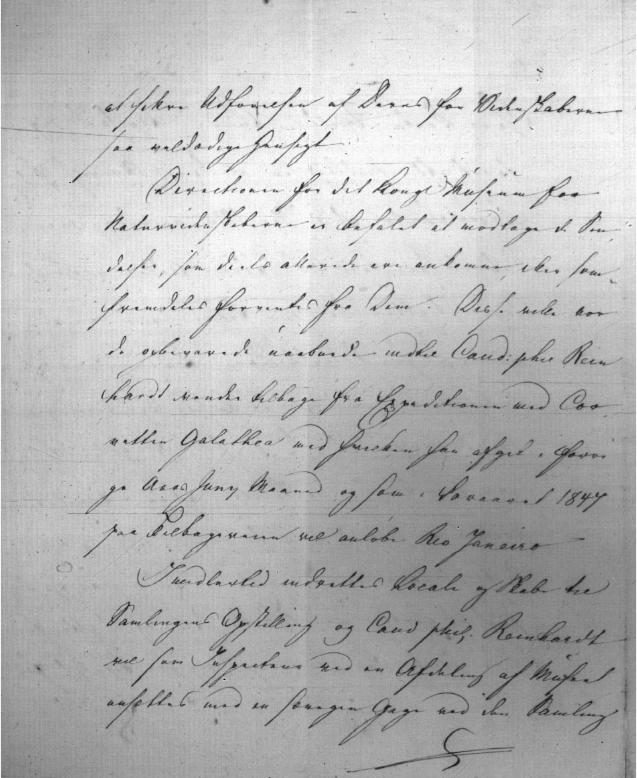 at sikre Udførelsen af Deres for Videnskaberne
saa veldædige Hensigt
Directionen for det Kongl Museum for
Naturvidenskaberne er befalet at modtage de Sen
delser, som deels allerede ere ankomne, eller som
fremdeles forventes fra Dem. Disse ville vor
de opbevarede uaabnede indtil Cand: phil Rein
hardt vender tilbage fra Expeditionen med Cor
vetten Galathea med hvilken han afgik i forri
ge Aars Juny Maaned og som i Foraaret 1847
paa Tilbageveien vil anløbe Rio Janeiro
Imidlertid indrettes Locale og Skabe til
Samlingens Opstilling og Cand phil. Reinhardt
vil som Inspecteur ved en Afdeling af Museet
ansættes med en Gage ved den Samling